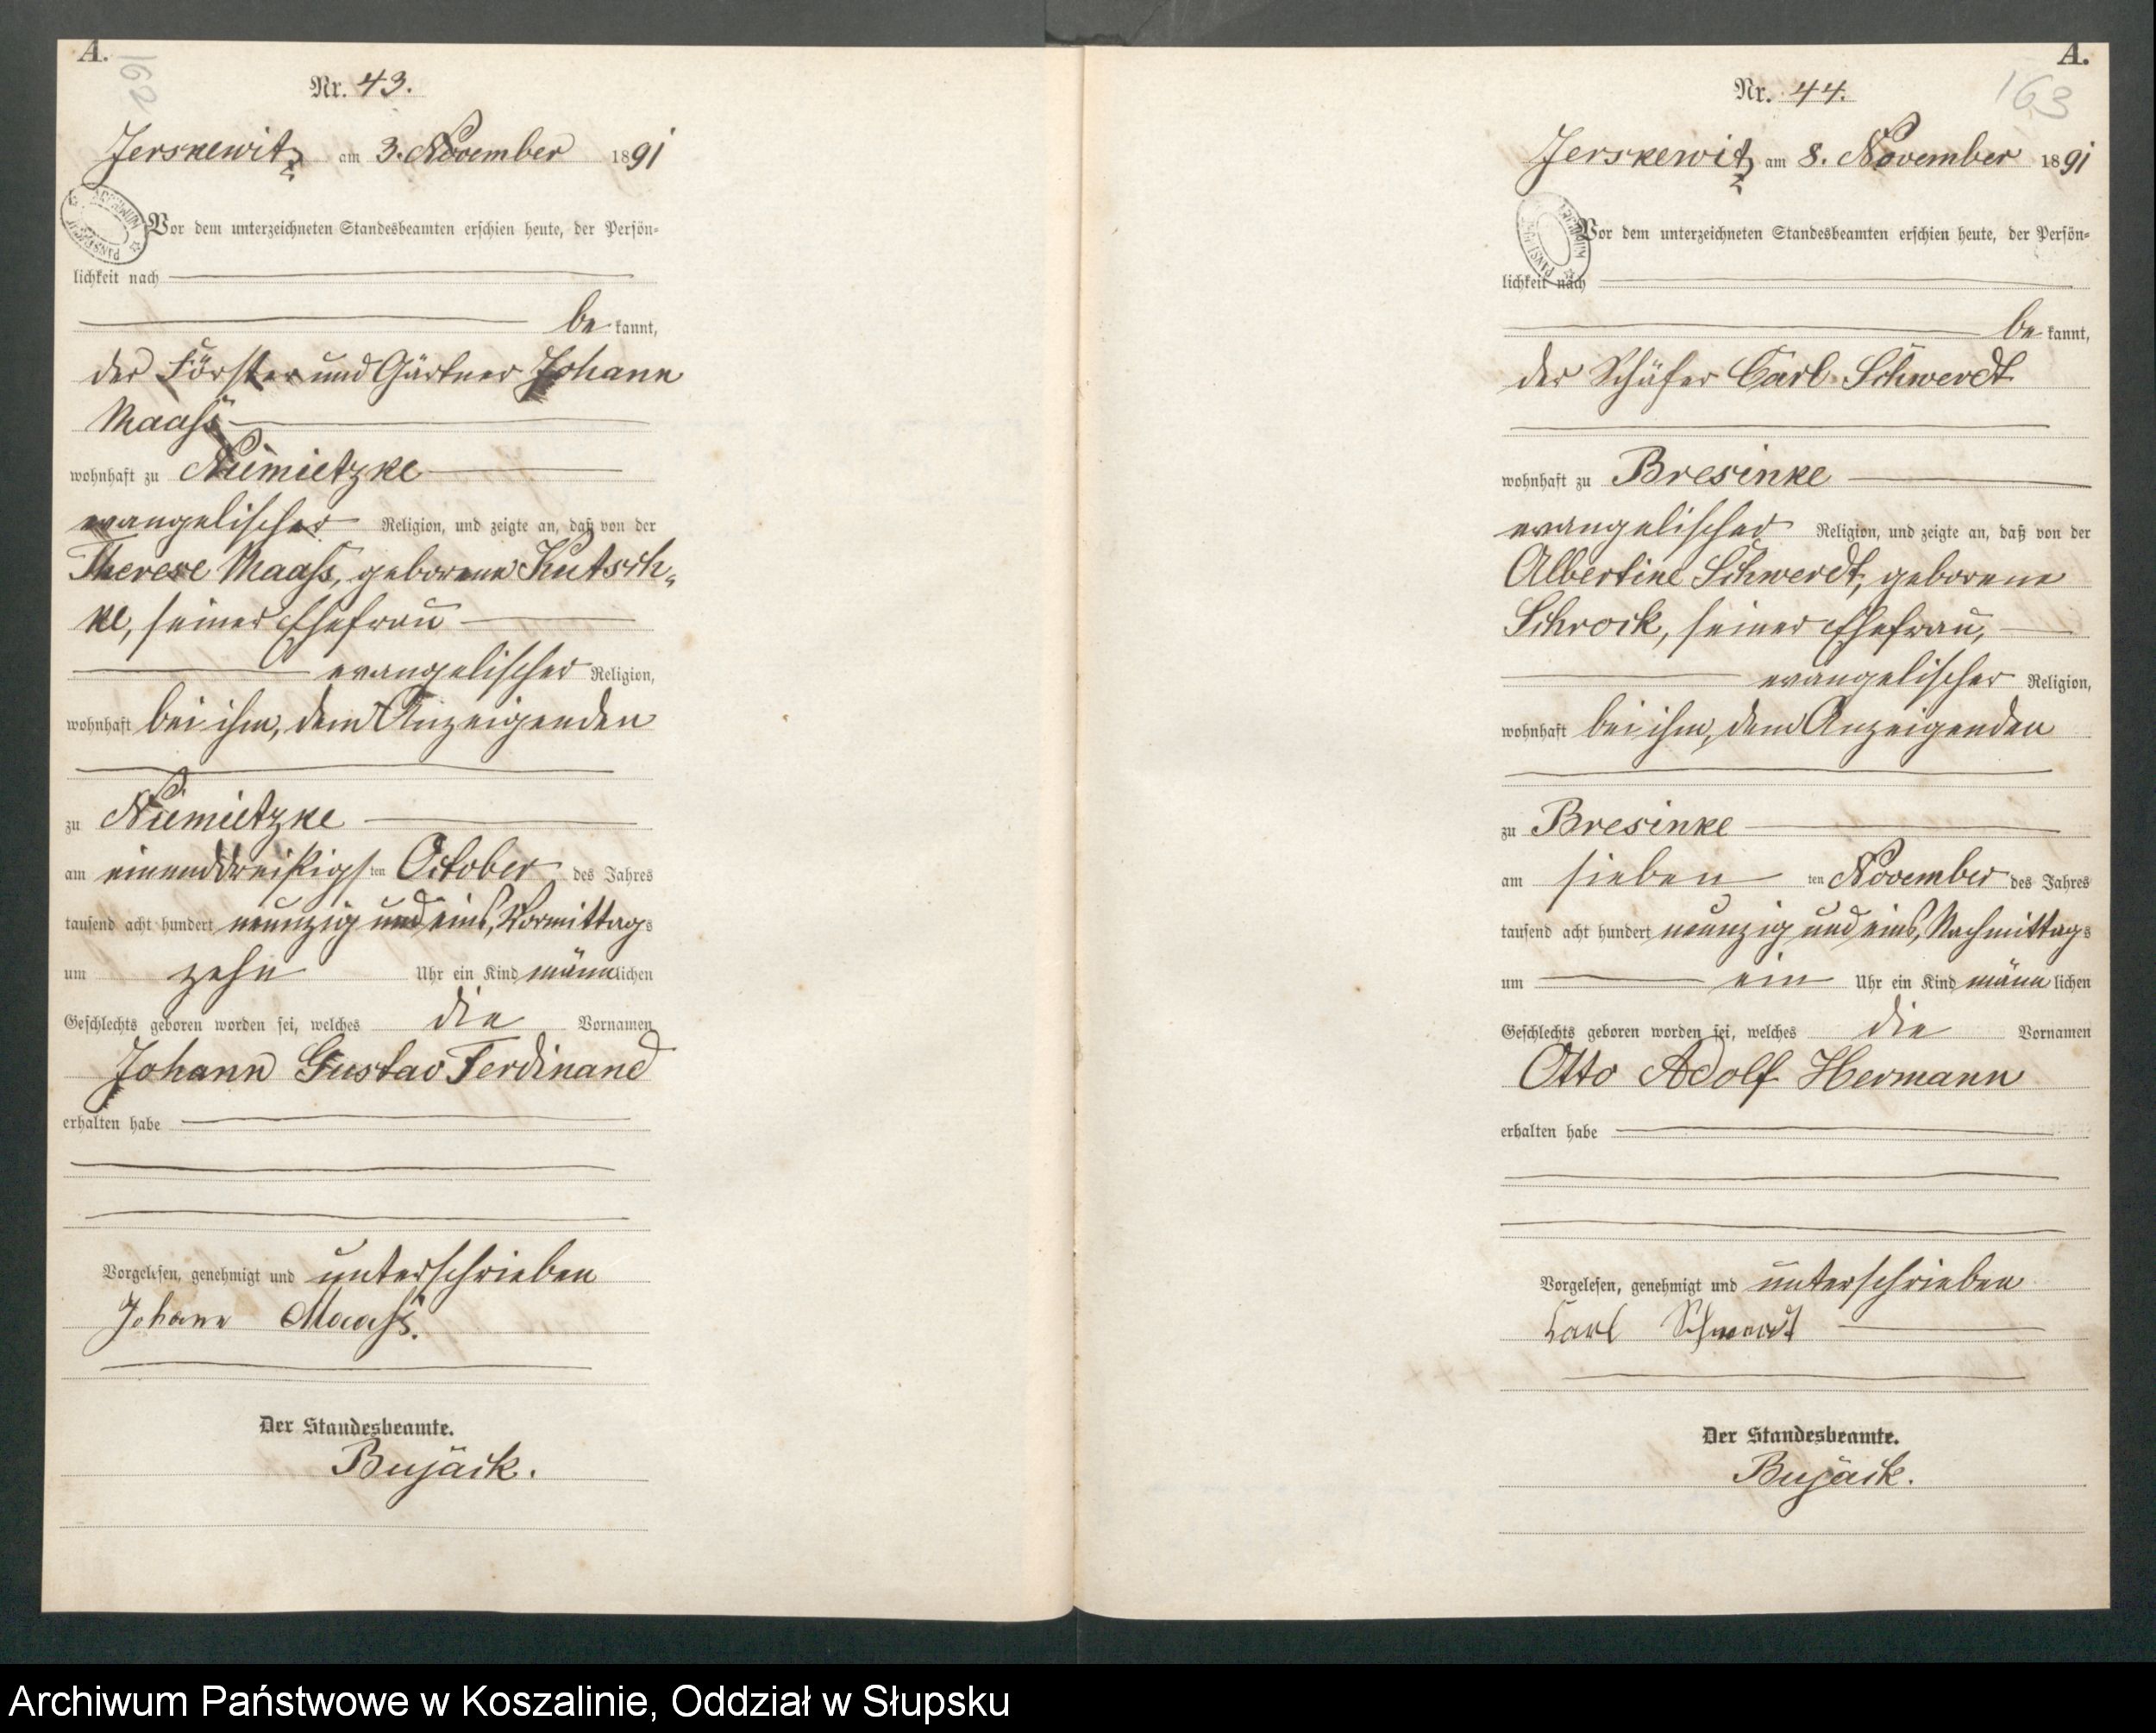 A.
162
Nr. 43.
Jerskewitz am 3. November 1891
Vor dem unterzeichneten Standesbeamten erschien heute, der Persön-
lichkeit nach
be kannt,
der Förster und Gärtner Johann
Maaß
wohnhaft zu Niemietzke
evangelischer Religion, und zeigte an, daß von der
Therese Maaß, geborene Kutsch-
ke, seiner Ehefrau
evangelischer Religion,
wohnhaft bei ihm, dem Anzeigenden
zu Niemietzke
am einunddreißigsten October des Jahres
tausend acht hundert neunzig und eins, Vormittags
um zehn Uhr ein Kind männlichen
Geschlechts geboren worden sei, welches die Vornamen
Johann Gustav Ferdinand
erhalten habe
Vorgelesen, genehmigt und unterschrieben
Johann Maaß.
Der Standesbeamte.
Bujäck.
A.
163
Nr. 44.
Jerskewitz am 8. November 1891
Vor dem unterzeichneten Standesbeamten erschien heute, der Persön-
lichkeit nach
be kannt,
der Schäfer Carl Schwerdt
wohnhaft zu Bresinke
evangelischer Religion, und zeigte an, daß von der
Albertine Schwerdt, geborene
Schrock, seiner Ehefrau,
evangelischer Religion,
wohnhaft bei ihm, dem Anzeigenden
zu Bresinke
am sieben ten November des Jahres
tausend acht hundert neunzig und eins, Nachmittags
um ein Uhr ein Kind männlichen
Geschlechts geboren worden sei, welches die Vornamen
Otto Adolf Hermann
erhalten habe
Vorgelesen, genehmigt und unterschrieben
Carl Schwerdt
Der Standesbeamte.
Bujäck.
Archiwum Państwowe w Koszalinie, Oddział w Słupsku